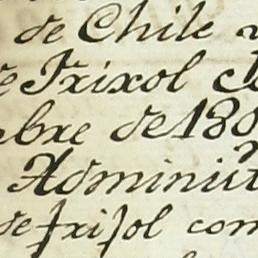 de Chile
de Frixol
bre de 180
Adminis
de frisol com